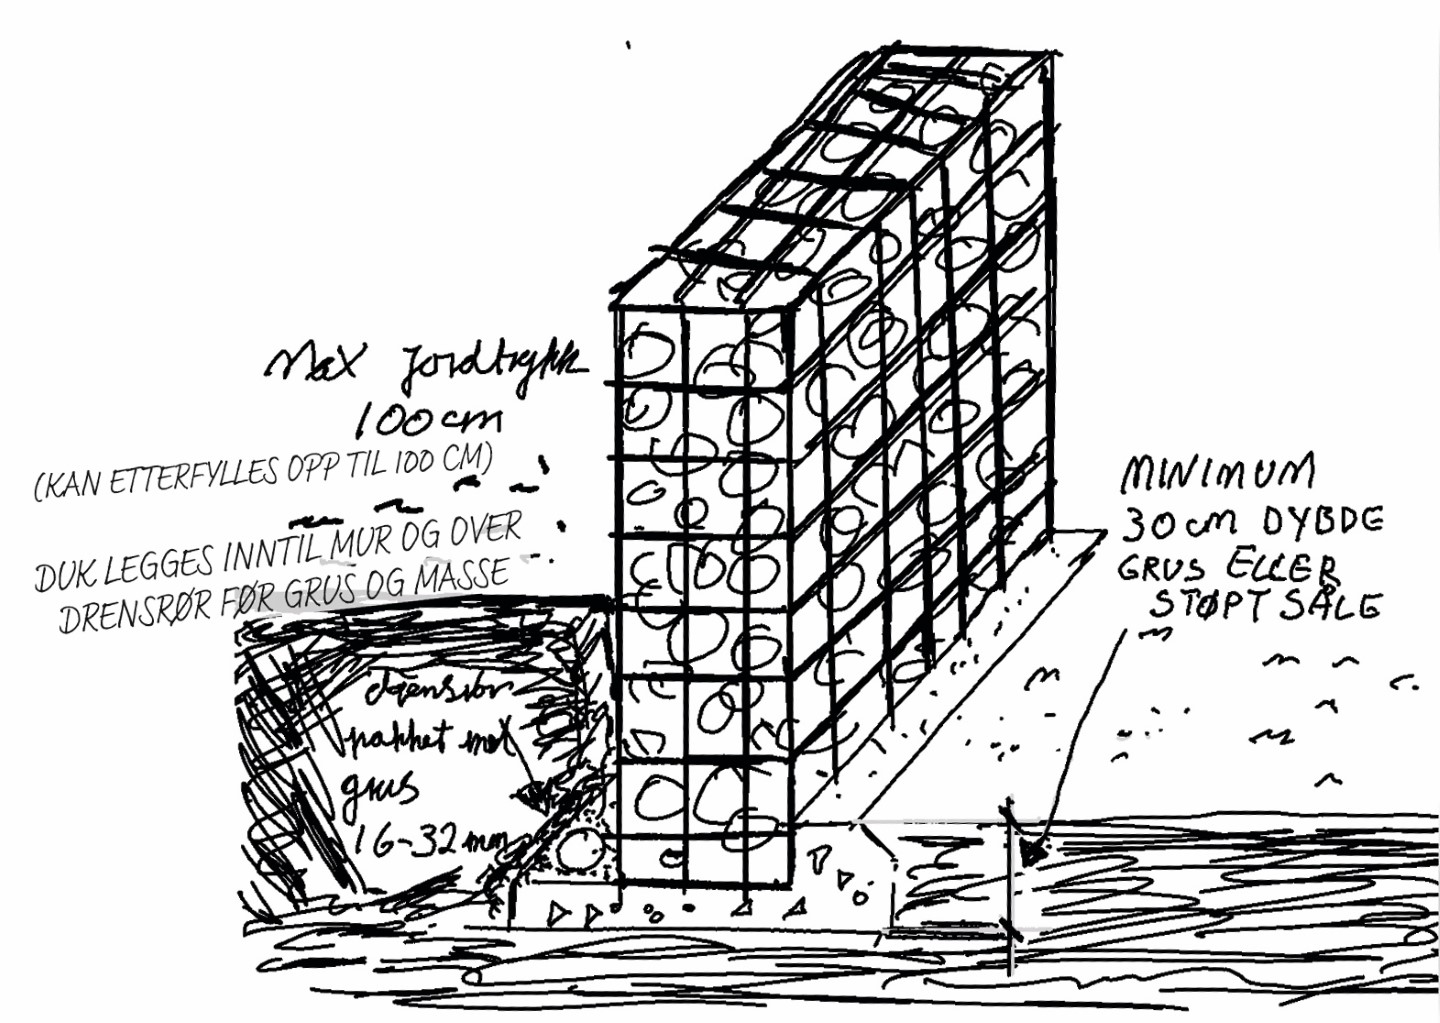 Max jordtrykk
100 cm
(KAN ETTERFYLLES OPP TIL 100 CM)
DUK LEGGES INNTIL MUR OG OVER
DRENSRØR FØR GRUS OG MASSE
drensrør
pakket med
grus
16-32 mm
MINIMUM
30 cm DYBDE
GRUS ELLER
STØPT SÅLE